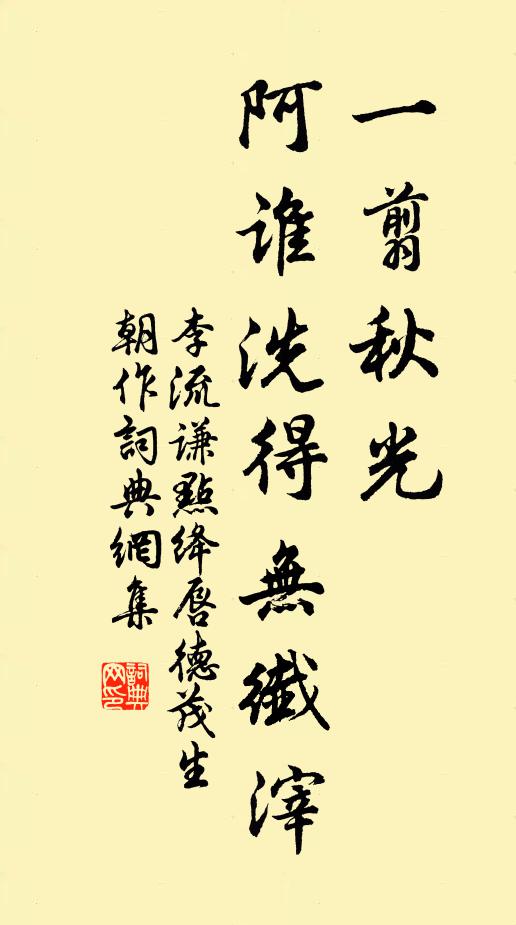 一翦秋光
阿谁洗得無纖滓
李流谦點绛唇德茂生
朝作詞典網集
詞典網印